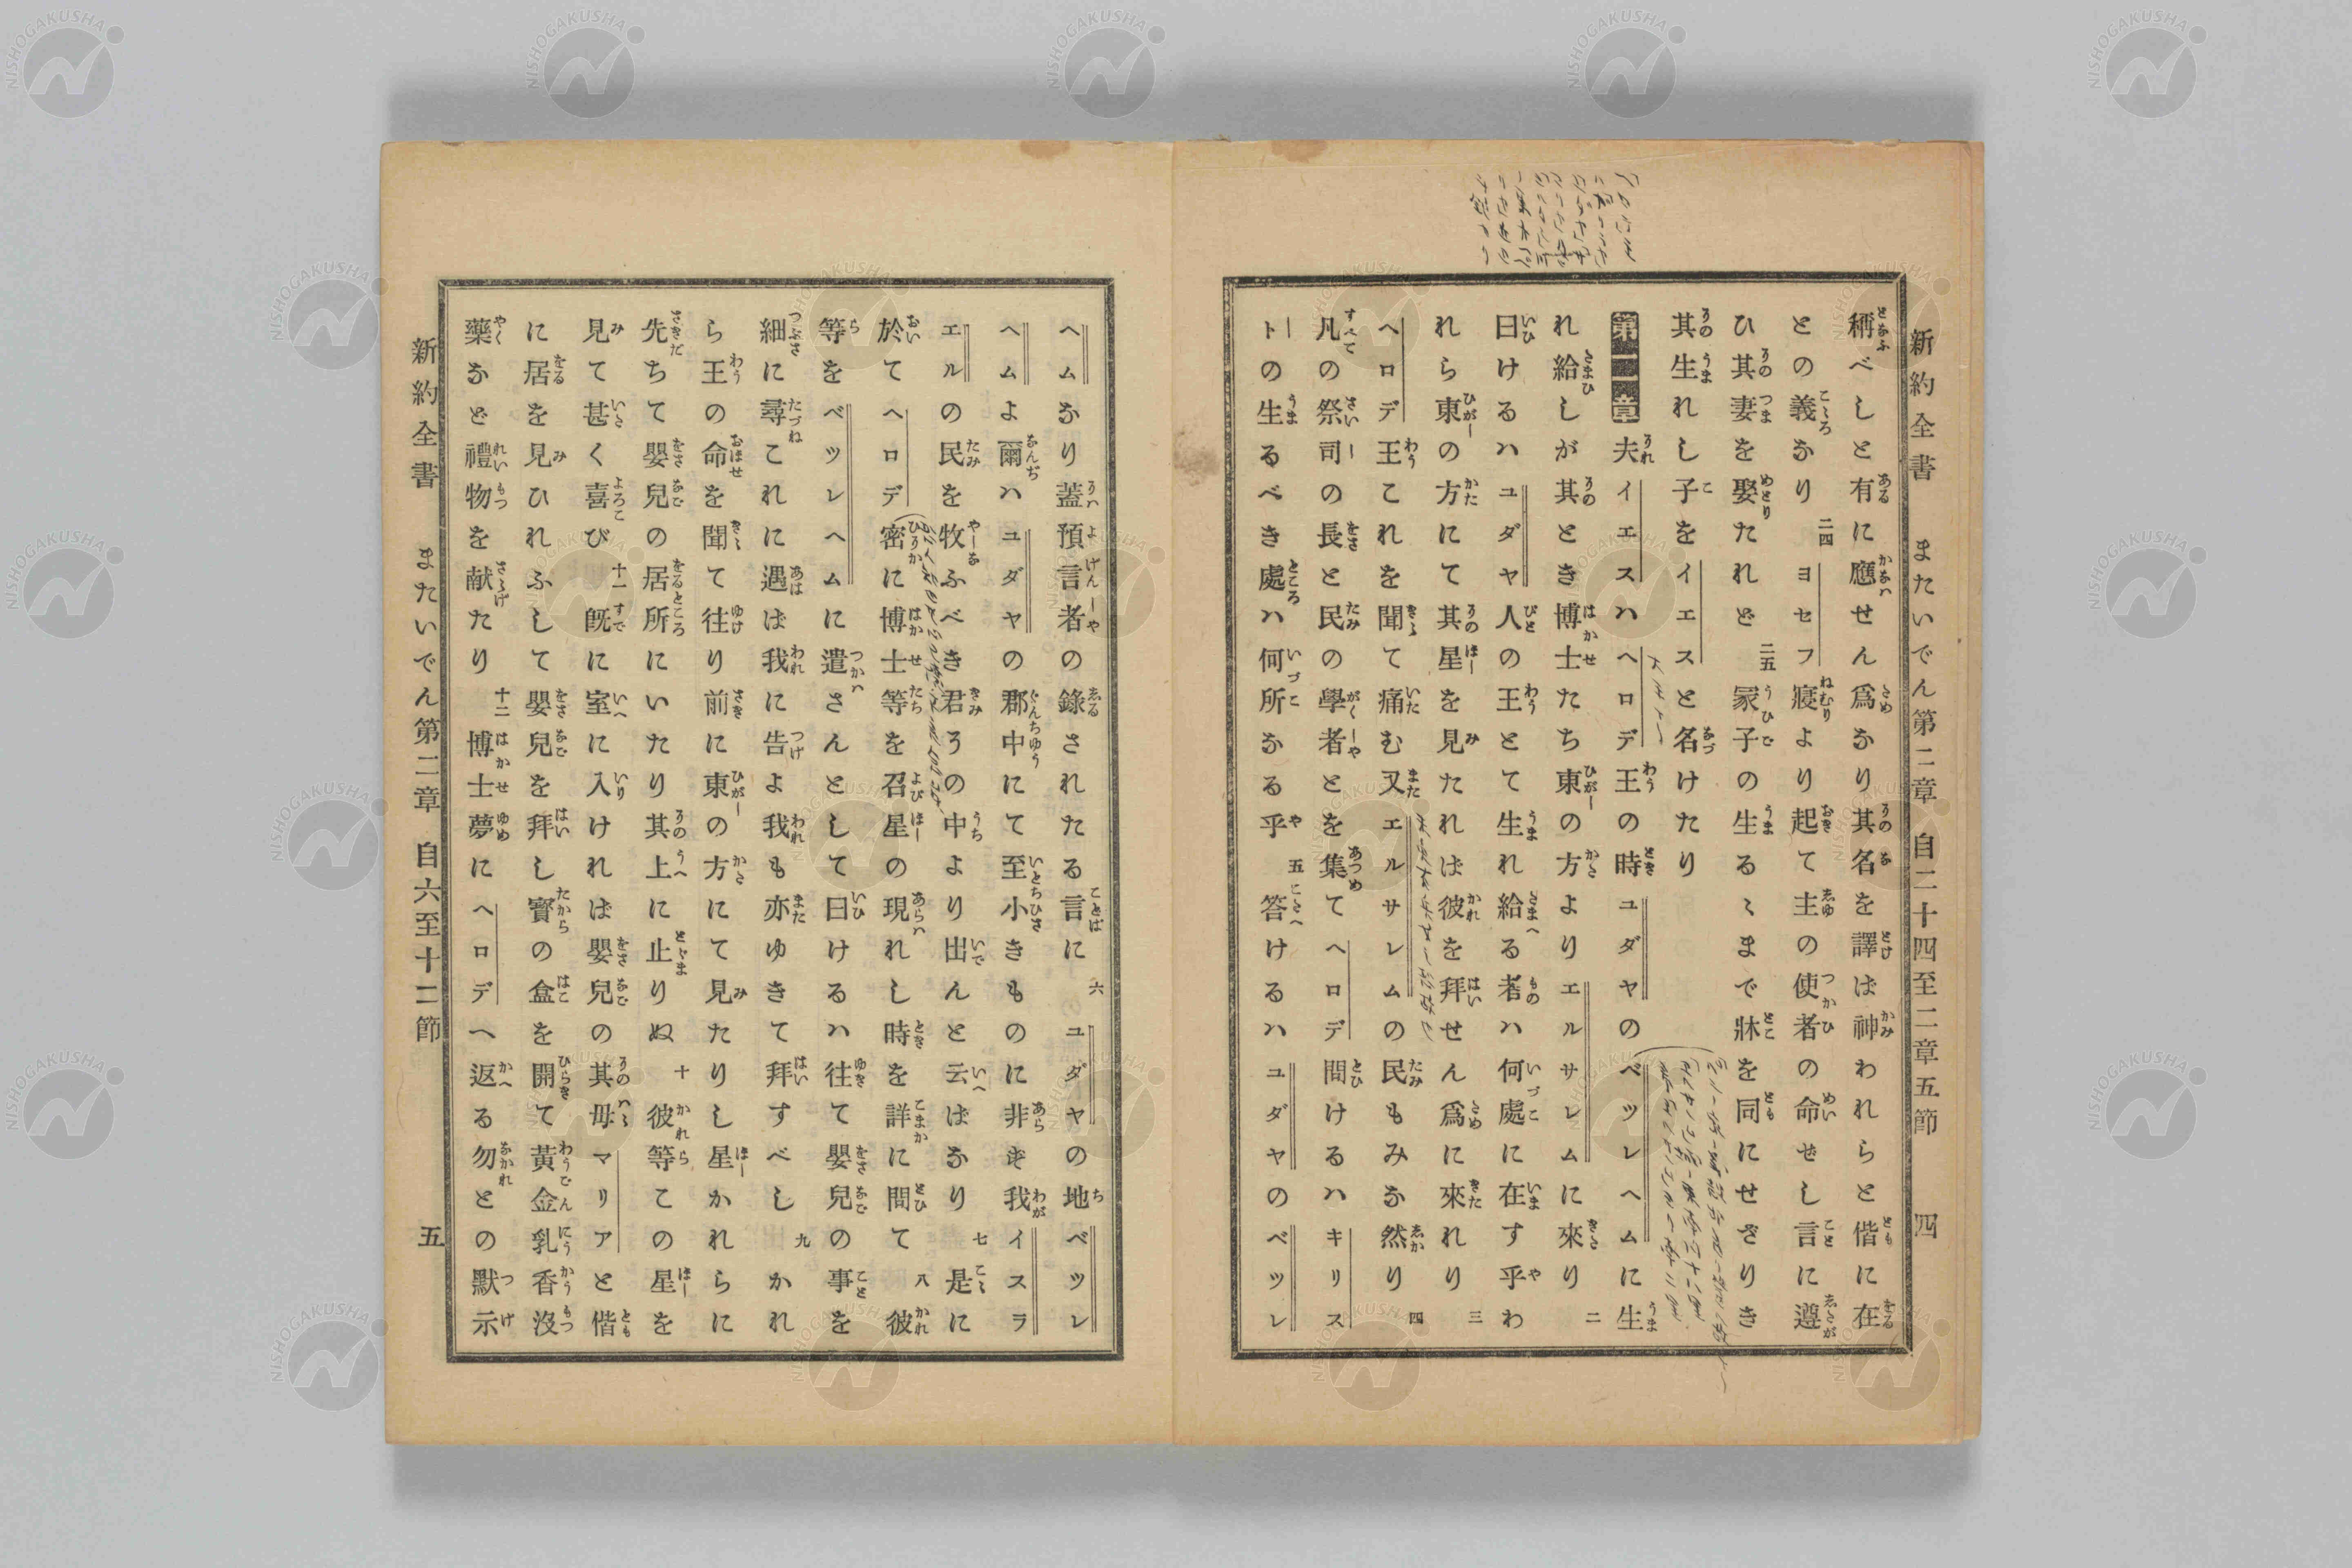 新約全書 またいでん第二章 自二十四至二章五節 四
稱べしと有に應せん爲なり其名を譯ば神われらと偕に在
との義なり 二四 ヨセフ寢より起て主の使者の命ぜし言に遵
ひ其妻を娶たれど 二五 冢子の生るゝまで牀を同にせざりき
其生れし子をイエスと名けたり
第二章 夫イエスハヘロデ王の時ユダヤのベツレヘムに生
れ給しが其とき博士たち東の方よりエルサレムに來り 二
曰けるハユダヤ人の王とて生れ給る者ハ何處に在す乎わ
れら東の方にて其星を見たれば彼を拜せん爲に來れり 三
ヘロデ王これを聞て痛む又エルサレムの民もみな然り 四
凡の祭司の長と民の學者とを集てヘロデ問けるハキリス
トの生るべき處ハ何所なる乎 五 答けるハユダヤのベツレ
ヘムなり蓋預言者の錄されたる言に 六 ユダヤの地ベツレ
ヘムよ爾ハユダヤの郡中にて至小きものに非ず我イスラ
エルの民を牧ふべき君その中より出んと云へばなり 七 是に
於てヘロデ密に博士等を召び星の現れし時を詳に問て 八 彼
等をベツレヘムに遣さんとして曰けるハ往て嬰兒の事を
細に尋これに遇ば我に告よ我も亦ゆきて拜すべし 九 かれ
ら王の命を聞て往り前に東の方にて見たりし星かれらに
先ちて嬰兒の居所にいたり其上に止りぬ 十 彼等この星を
見て甚く喜び 十一 旣に室に入ければ嬰兒の其母マリアと偕
に居を見ひれふして嬰兒を拜し寳の盒を開て黃金乳香沒
藥など禮物を献たり 十二 博士夢にヘロデへ返る勿との默示
新約全書 またいでん第二章 自六至十二節 五